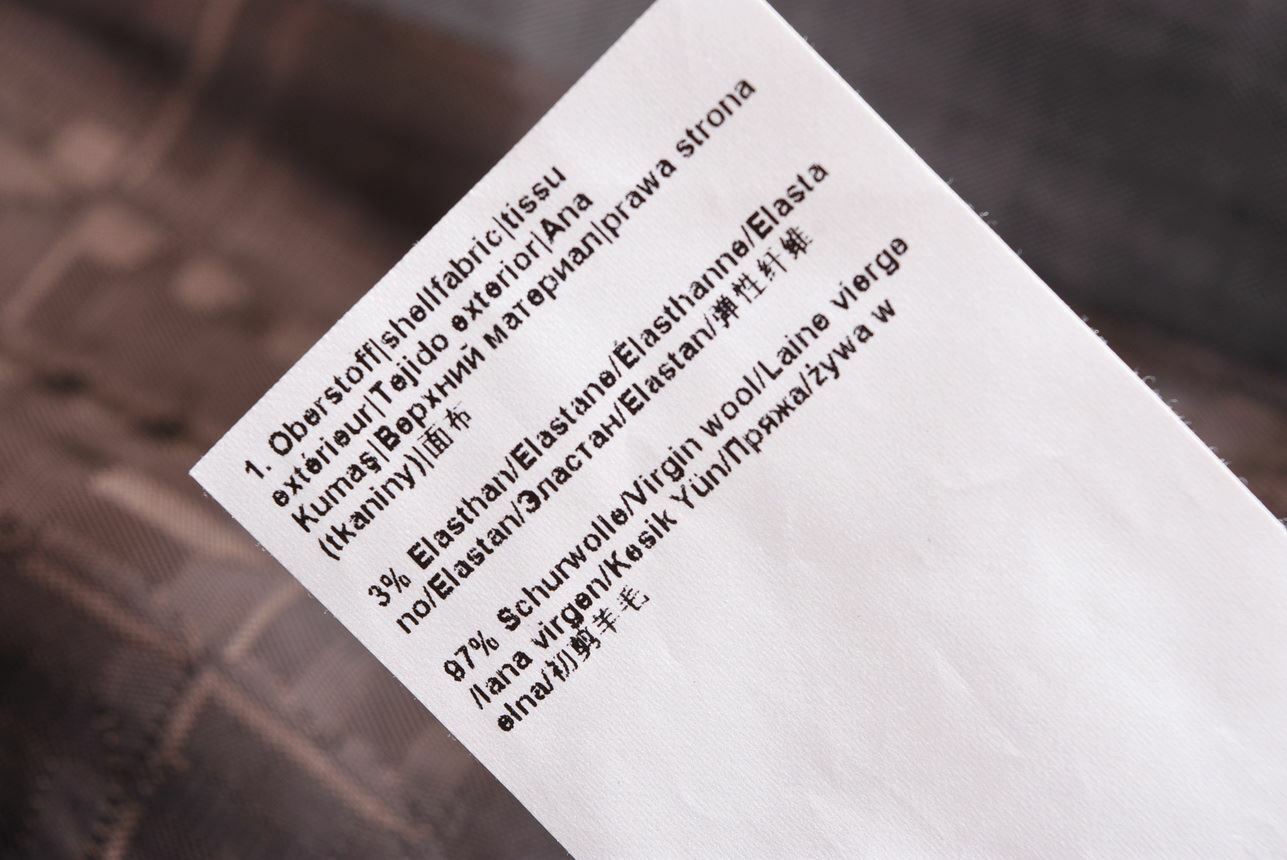 1. Oberstoff|shellfabric|tissu
extérieur|Tejido exterior|Ana
Kumaş|Верхний материал|prawa strona
(tkaniny)|面布
3% Elasthan/Elastane/Élasthanne/Elasta
no/Elastan/Эластан/Elastan/弹性纤维
97% Schurwolle/Virgin wool/Laine vierge
/lana virgen/Kesik Yün/Пряжа/żywa w
ełna/初剪羊毛